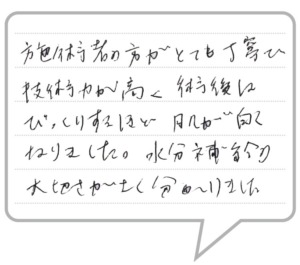 施術者の方がとても丁寧で
技術力が高く 術後は
びっくりするほど 肌が白く
なりました。水分補給の
大切さがよく分かりました